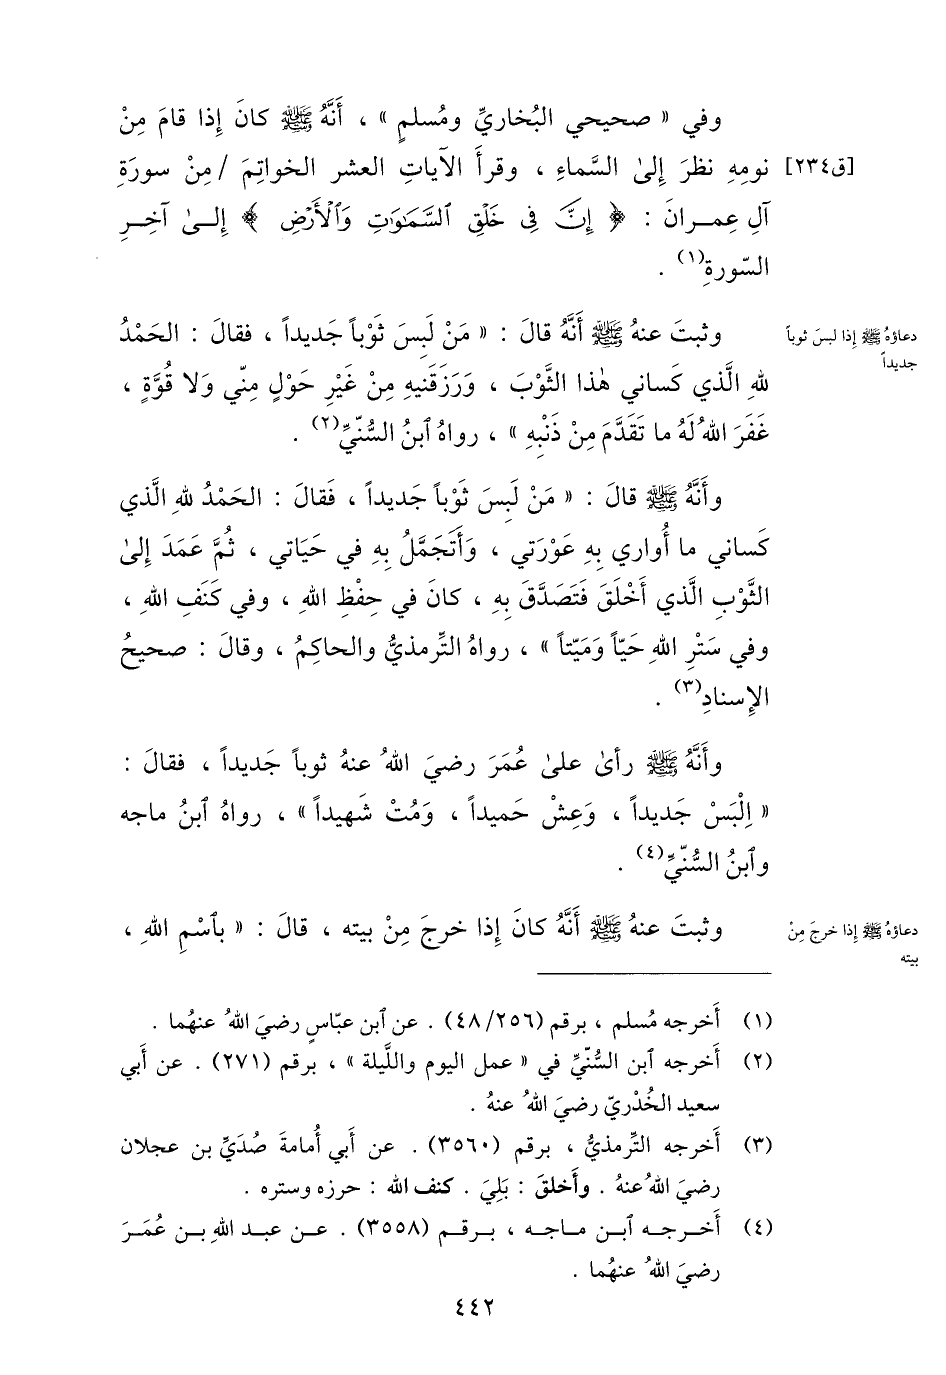 وفي « صحيحي البُخاريِّ ومُسلمٍ » ، أَنَّهُ ﷺ كانَ إِذا قامَ مِنْ
[ق٢٣٤] نومِهِ نظرَ إِلىٰ السَّماءِ ، وقرأَ الآياتِ العشر الخواتِمَ / مِنْ سورَةِ
آلِ عِمـرانَ : ﴿ إِنَّ فِي خَلْقِ ٱلسَّمَٰوَٰتِ وَٱلْأَرْضِ ﴾ إِلـىٰ آخِـرِ
السّورةِ(١) .
دعاؤهُ ﷺ إِذا لبسَ ثوباً
جديداً
وثبتَ عنهُ ﷺ أَنَّهُ قالَ : « مَنْ لَبِسَ ثَوْباً جَديداً ، فقالَ : الحَمْدُ
للهِ الَّذي كَساني هٰذا الثَّوْبَ ، وَرَزَقَنيهِ مِنْ غَيْرِ حَوْلٍ مِنّي وَلا قُوَّةٍ ،
غَفَرَ اللهُ لَهُ ما تَقَدَّمَ مِنْ ذَنْبِهِ » ، رواهُ ٱبنُ السُّنّيِّ(٢) .
وأَنَّهُ ﷺ قالَ : « مَنْ لَبِسَ ثَوْباً جَديداً ، فَقالَ : الحَمْدُ للهِ الَّذي
كَساني ما أُواري بِهِ عَوْرَتي ، وَأَتَجَمَّلُ بِهِ في حَيَاتي ، ثُمَّ عَمَدَ إِلىٰ
الثَّوْبِ الَّذي أَخْلَقَ فَتَصَدَّقَ بِهِ ، كانَ في حِفْظِ اللهِ ، وفي كَنَفِ اللهِ ،
وفي سَتْرِ اللهِ حَيّاً وَمَيّتاً » ، رواهُ التِّرمذيُّ والحاكِمُ ، وقالَ : صحيحُ
الإِسنادِ(٣) .
وأَنَّهُ ﷺ رأىٰ علىٰ عُمَرَ رضيَ اللهُ عنهُ ثوباً جَديداً ، فقالَ :
« اِلْبَسْ جَديداً ، وَعِشْ حَميداً ، وَمُتْ شَهيداً » ، رواهُ ٱبنُ ماجه
وٱبنُ السُّنّيِّ(٤) .
دعاؤهُ ﷺ إِذا خرجَ مِنْ
بيته
وثبتَ عنهُ ﷺ أَنَّهُ كانَ إِذا خرجَ مِنْ بيته ، قالَ : « بِٱسْمِ اللهِ ،
(١) أَخرجه مُسلم ، برقم (٤٨/٢٥٦) . عن ٱبن عبّاسٍ رضيَ اللهُ عنهُما .
(٢) أَخرجه ٱبن السُّنّيِّ في « عمل اليوم واللَّيلة » ، برقم (٢٧١) . عن أَبي
سعيد الخُدْريّ رضيَ اللهُ عنهُ .
(٣) أَخرجه التِّرمذيُّ ، برقم (٣٥٦٠) . عن أَبي أُمامةَ صُدَيِّ بن عجلان
رضيَ اللهُ عنهُ . وأَخلقَ : بَلِيَ . كنف الله : حرزه وستره .
(٤) أَخـرجـه ٱبـن مـاجـه ، بـرقـم (٣٥٥٨) . عـن عبـد اللهِ بـن عُمَـرَ
رضيَ اللهُ عنهُما .
٤٤٢